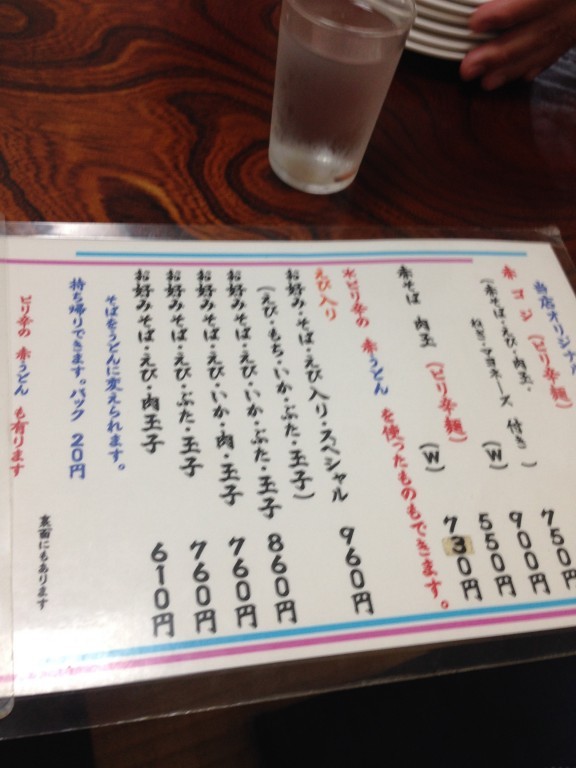 当店オリジナル
赤ゴジ(ピリ辛麺) 750円
(赤そば・えび・肉玉・
ねぎ・マヨネーズ 付き) (W) 900円
赤そば 肉玉 (ピリ辛麺) 550円
(W) 730円
*ピリ辛の 赤うどん を使ったものもできます。
えび入り
お好み・そば・えび入り・スペシャル 960円
(えび・もち・いか・ぶた・玉子)
お好みそば・えび・いか・ぶた・玉子 860円
お好みそば・えび・いか・肉・玉子 760円
お好みそば・えび・ぶた・玉子 760円
お好みそば・えび・肉玉子 610円
そばをうどんに変えられます。
持ち帰りできます。パック 20円
ピリ辛の 赤うどん も有ります
裏面にもあります